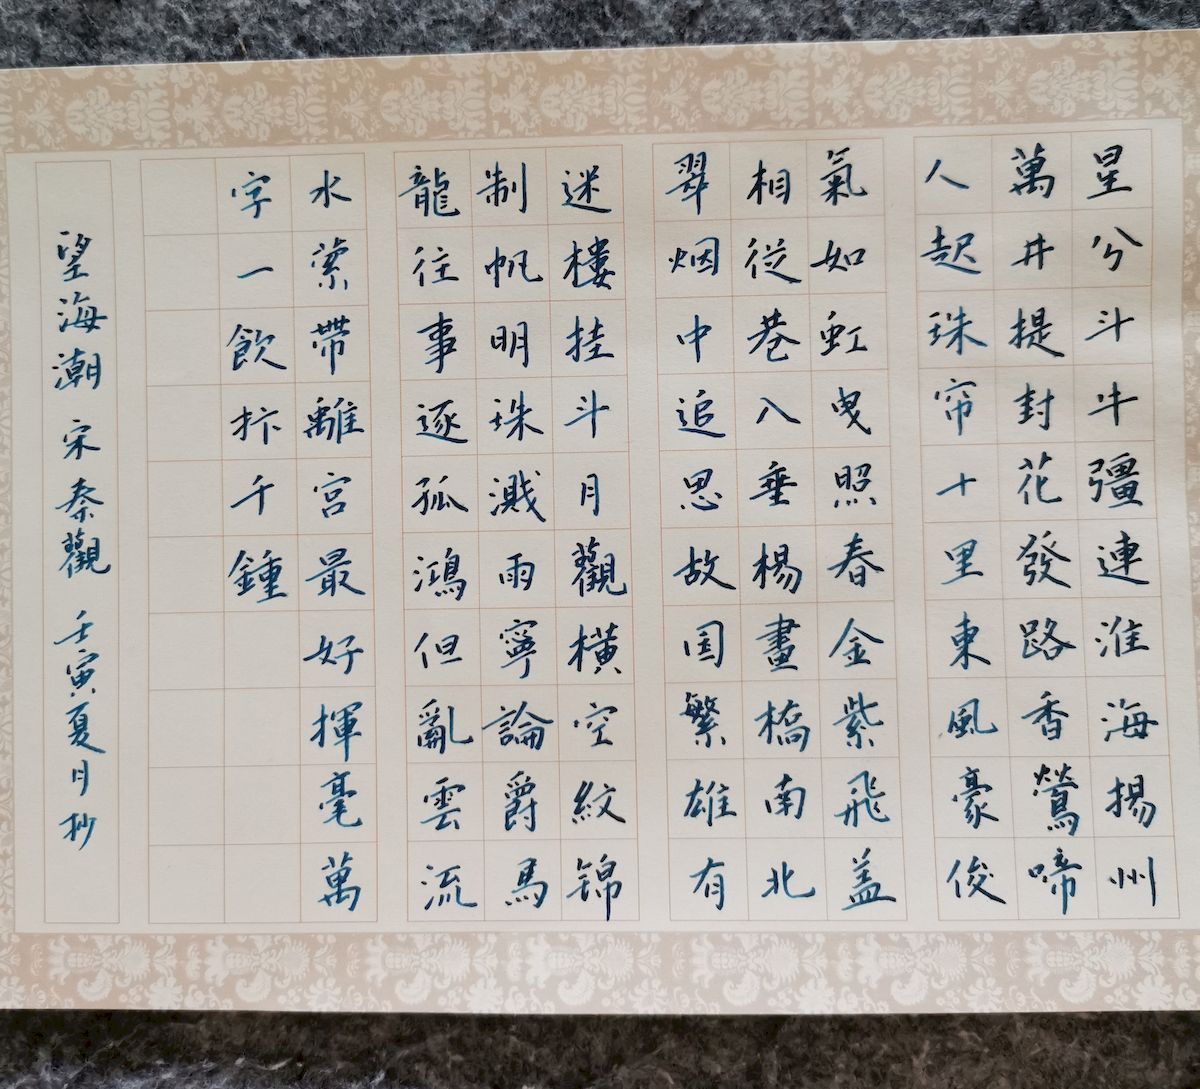 星兮斗牛彊連淮海揚州
萬井提封花發路香鶯啼
人起珠帘十里東風豪俊
氣如虹曳照春金紫飛盖
相從巷入垂楊畫橋南北
翠烟中追思故国繁雄有
迷樓挂斗月觀橫空紋锦
制帆明珠濺雨寧論爵馬
龍往事逐孤鴻但亂雲流
水縈帶離宮最好揮毫萬
字一飲拚千鍾
望海潮 宋 秦觀 壬寅夏月抄